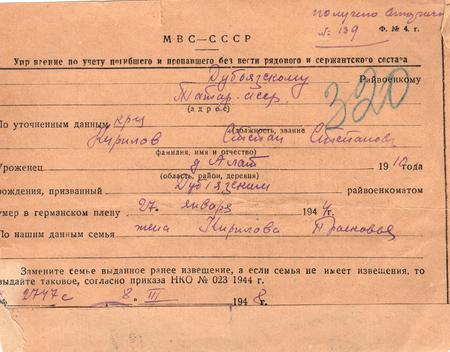 получено
№ 139
Ф. № 4. г.
МВС—СССР
Упр вление по учету погибшего и пропавшего без вести рядового и сержантского состава
Дубьязскому Райвоенкому
Татар. АССР.
(адрес)
320
По уточненным данным кр-ц
(должность, звание
Кирилов Степан Степанов
фамилия, имя и отчество)
Уроженец д Алат 1910 года
(область, район, деревня)
рождения, призванный Дубьязским райвоенкоматом
умер в германском плену 27 января 1944 г.
По нашим данным семья жена Кирилова
Замените семье выданное ранее извещение, а если семья не имеет извещения, то
выдайте таковое, согласно приказа НКО № 023 1944 г.
2747с 8. III 1948 г.